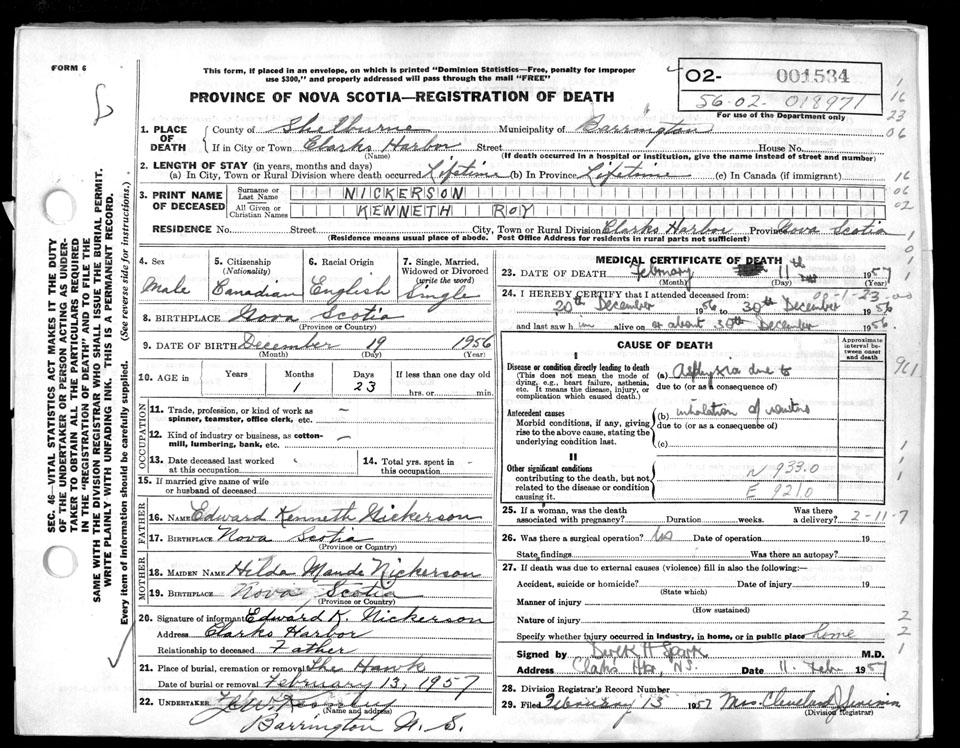 FORM 6
This form, if placed in an envelope, on which is printed "Dominion Statistics—Free, penalty for improper
use $300," and properly addressed will pass through the mail "FREE"
PROVINCE OF NOVA SCOTIA—REGISTRATION OF DEATH
02- 001534
56-02- 018971
For use of the Department only
1. PLACE OF DEATH
County of Shelburne Municipality of Barrington
If in City or Town Clarks Harbor Street House No.
(Name) (If death occurred in a hospital or institution, give the name instead of street and number)
2. LENGTH OF STAY (in years, months and days)
(a) In City, Town or Rural Division where death occurred Lifetime (b) In Province Lifetime (c) In Canada (if immigrant)
3. PRINT NAME OF DECEASED
Surname or Last Name NICKERSON
All Given or Christian Names KENNETH ROY
RESIDENCE No. Street City, Town or Rural Division Clarks Harbor Province Nova Scotia
(Residence means usual place of abode. Post Office Address for residents in rural parts not sufficient)
4. Sex
Male
5. Citizenship (Nationality)
Canadian
6. Racial Origin
English
7. Single, Married, Widowed or Divorced (write the word)
Single
8. BIRTHPLACE Nova Scotia
(Province or Country)
9. DATE OF BIRTH December 19 1956
(Month) (Day) (Year)
10. AGE in Years Months Days If less than one day old
1 23 hrs. or min.
OCCUPATION
11. Trade, profession, or kind of work as spinner, teamster, office clerk, etc. —
12. Kind of industry or business, as cotton-mill, lumbering, bank, etc. —
13. Date deceased last worked at this occupation
14. Total yrs. spent in this occupation
15. If married give name of wife or husband of deceased
FATHER
16. NAME Edward Kenneth Nickerson
17. BIRTHPLACE Nova Scotia
(Province or Country)
MOTHER
18. MAIDEN NAME Hilda Maude Nickerson
19. BIRTHPLACE Nova Scotia
(Province or Country)
20. Signature of informant Edward K. Nickerson
Address Clarks Harbor
Relationship to deceased Father
21. Place of burial, cremation or removal The Hawk
Date of burial or removal February 13, 1957
22. UNDERTAKER
(Name and address)
Barrington N. S.
MEDICAL CERTIFICATE OF DEATH
23. DATE OF DEATH February 11th 1957
(Month) (Day) (Year)
24. I HEREBY CERTIFY that I attended deceased from:
20th December 1956 to 30th December 1956
and last saw him alive on or about 30th December 1956.
CAUSE OF DEATH
Approximate interval between onset and death
I
Disease or condition directly leading to death
(This does not mean the mode of dying, e.g., heart failure, asthenia, etc. It means the disease, injury, or complication which caused death.)
(a) Asphyxia due to
due to (or as a consequence of)
Antecedent causes
Morbid conditions, if any, giving rise to the above cause, stating the underlying condition last.
(b) inhalation of vomitus
due to (or as a consequence of)
(c)
II
Other significant conditions
contributing to the death, but not related to the disease or condition causing it.
N 933.0
E 921.0
25. If a woman, was the death associated with pregnancy? Duration weeks. Was there a delivery? 2-11-7
26. Was there a surgical operation? No Date of operation 19
State findings Was there an autopsy?
27. If death was due to external causes (violence) fill in also the following:—
Accident, suicide or homicide? Date of injury 19
(State which)
Manner of injury
(How sustained)
Nature of injury
Specify whether injury occurred in industry, in home, or in public place home
Signed by Derek H M.D.
Address Clarks Hbr, N.S. Date 11. Febr 1957
28. Division Registrar's Record Number
29. Filed February 13 1957 Mrs. Cleveland
(Division Registrar)
SEC. 46—VITAL STATISTICS ACT MAKES IT THE DUTY
OF THE UNDERTAKER OR PERSON ACTING AS UNDER-
TAKER TO OBTAIN ALL THE PARTICULARS REQUIRED
IN THE "REGISTRATION OF DEATH" AND TO FILE THE
SAME WITH THE DIVISION REGISTRAR WHO SHALL ISSUE THE BURIAL PERMIT.
WRITE PLAINLY WITH UNFADING INK. THIS IS A PERMANENT RECORD.
Every item of Information should be carefully supplied. (See reverse side for instructions.)